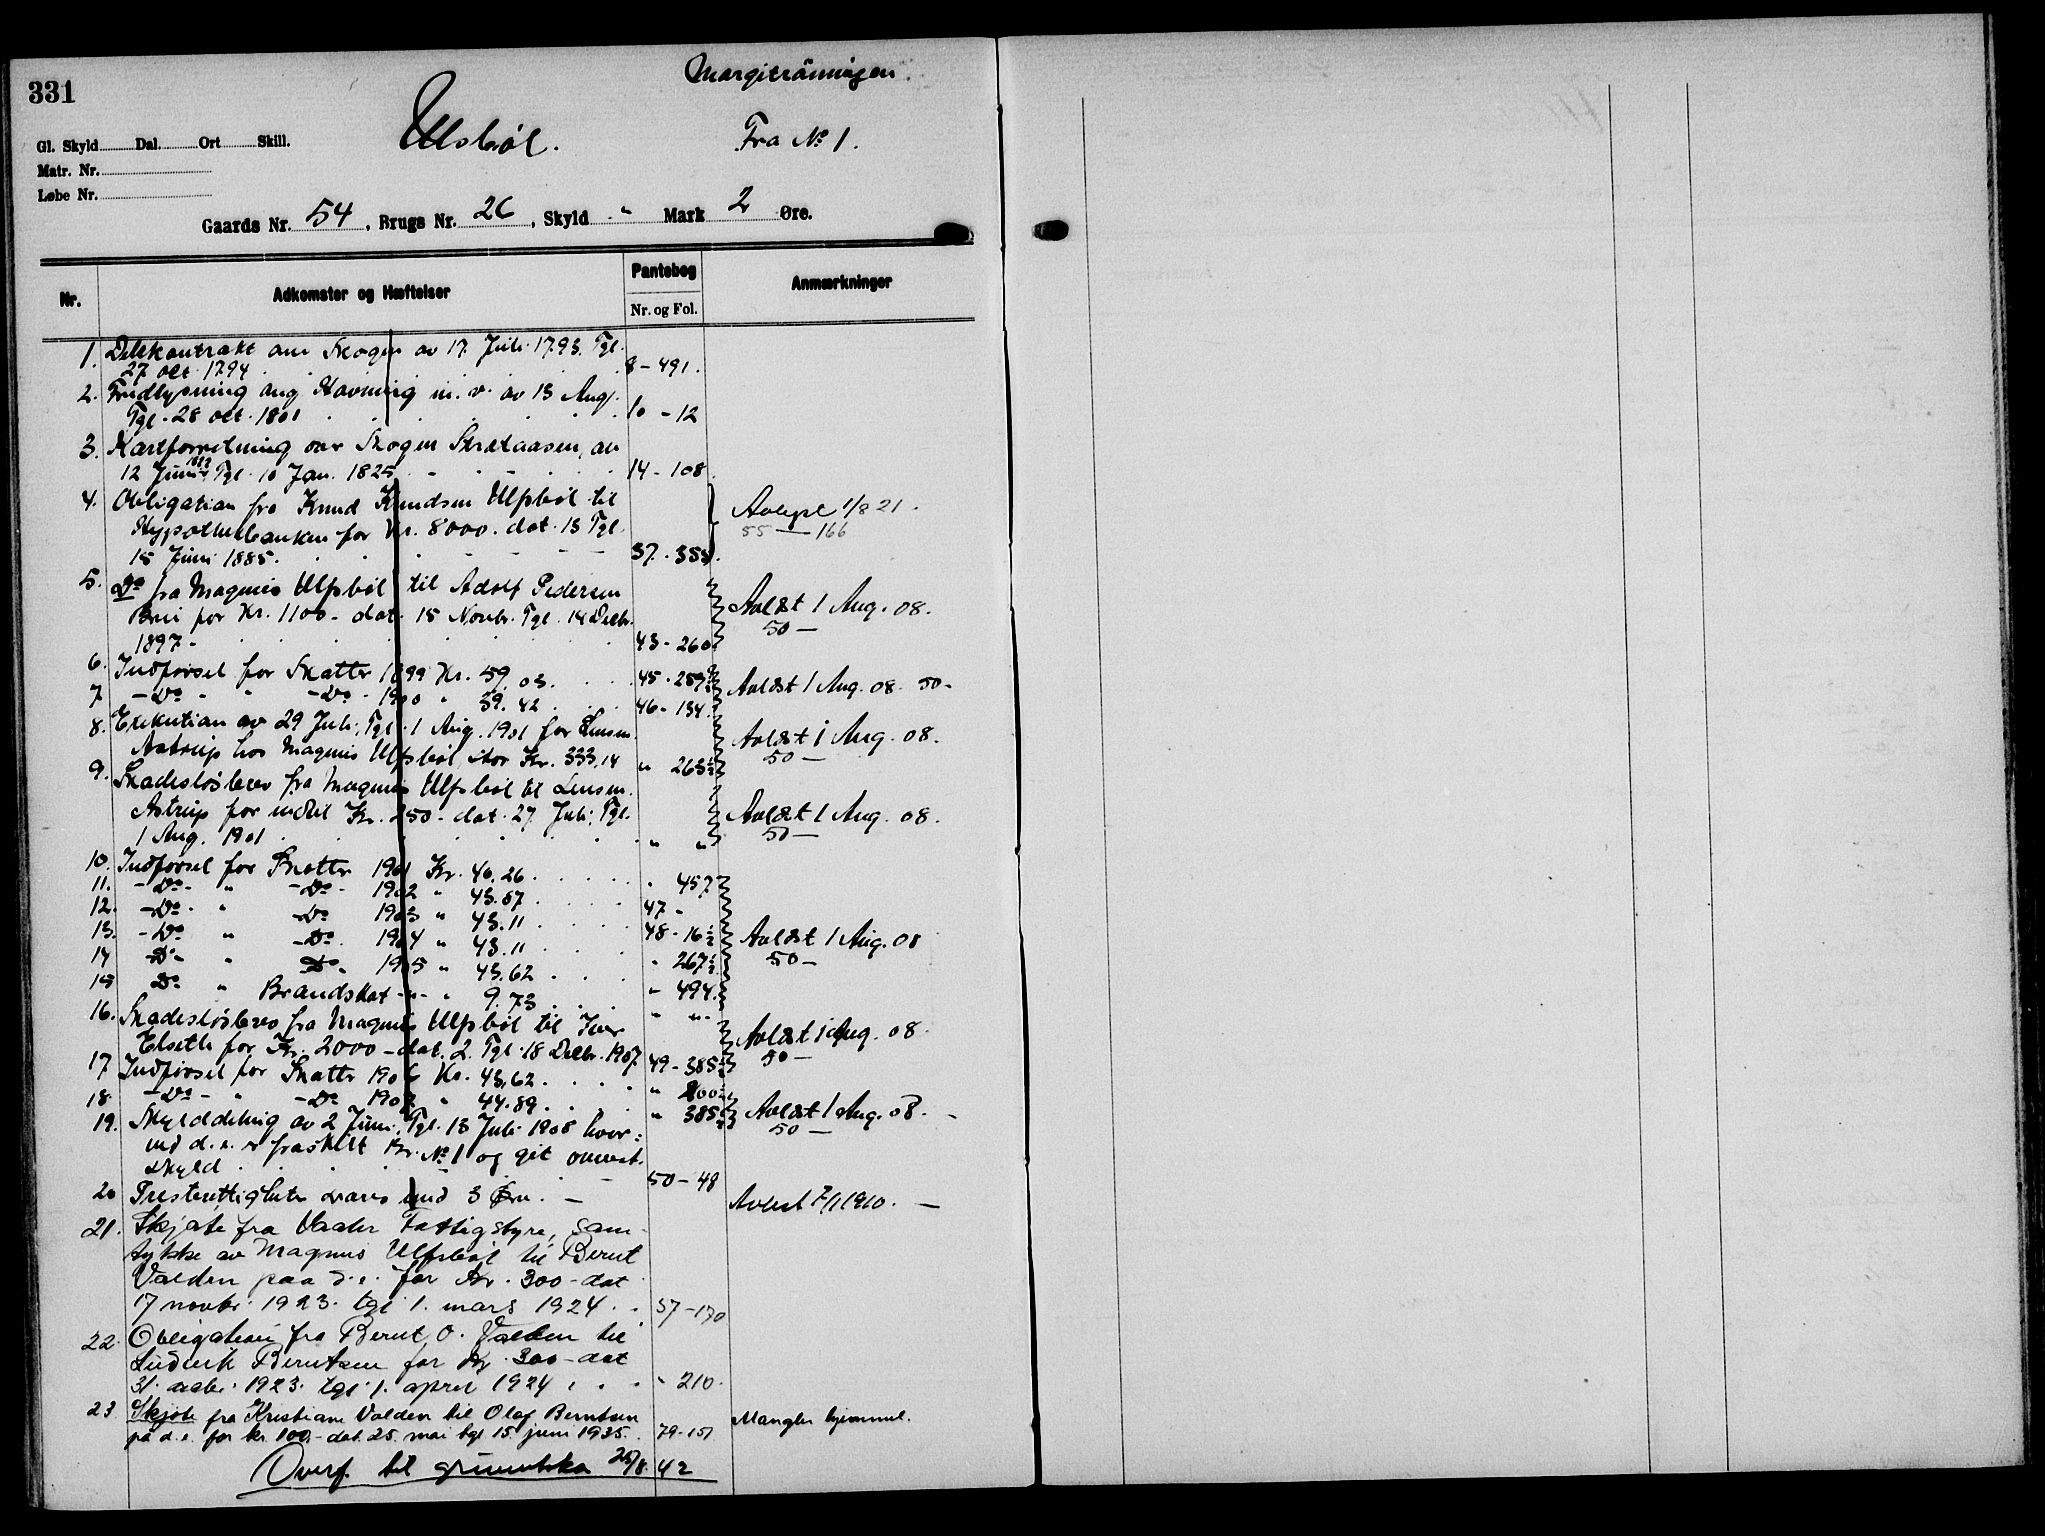 331
Margitrönningen
Ulsböl.
Fra No 1.
Gl. Skyld Dal. Ort Skill.
Matr. Nr.
Løbe Nr.
Gaards Nr. 54, Brugs Nr. 26, Skyld " Mark 2 Øre.
Nr. Adkomster og Hæftelser Pantebog Anmærkninger
Nr. og Fol.
1. Delekontrakt om Skogen av 17. Juli 1793. Tgl.
27 Oct. 1794 8-491.
2. Fredlysning ang Havning m. v. av 13 Aug.
Tgl. 28 oct. 1801 10-12
3. Kartforretning over Skogen av
12 Juni Tgl. 10 Jan. 1825 14-108.
4. Obligation fra Knud Knudsen Ulfsböl til
Hypothekbanken for Kr. 8000. dat. 13 Tgl.
15 Juni 1885. 37-353.
Avlyst 1/8 21.
55 — 166
5. Do fra Magnus Ulfsböl til Adolf Pedersen
Brui for Kr. 1100 - dat. 15 Novbr. Tgl. 14 Decbr.
1897 - 43-260
Avlæst 1 Aug. 08.
50 —
6. Indførsel for Skatter 1899 Kr. 59,03. 45-259½
7 -Do- " -Do- 1900 " 39.42 46-134.
Avlæst 1 Aug. 08. 50-
8. Exekution av 29 Juli, Tgl. 1 Aug. 1901 for Lensm.
Aatrup hos Magnus Ulfsböl stor Kr. 333,14 " 263½
Avlæst 1 Aug. 08.
50 —
9. Skadesløsbrev fra Magnus Ulfsböl til Lensm.
Astrup for indtil Kr. 250 - dat. 27 Juli, Tgl.
1 Aug. 1901 " "
Avlæst 1 Aug. 08.
50 —
10. Indførsel for Skatter 1901 Kr. 40.26 " 457
11. -Do- " -Do- 1902 " 43.57 47 -
12. -Do- " -Do 1903 " 43.11 48-16½
13. -Do " -Do- 1904 " 43.11 " 267½
14 -Do- " Do- 1905 " 43.62 " 494.
15 Do " Brandskat -"- " 9.73 " "
Avlæst 1 Aug. 08
50 —
16. Skadesløsbrev fra Magnus Ulfsböl til Iver
Elseth for Kr. 2000 - dat. 2. Tgl. 18 Decbr. 1907 49-385½
Avlæst 1 Aug. 08.
50 —
17 Indførsel for Skatter 1906 Kr. 43,62. " 200½
18. -Do- " -Do 1907 " 44.89. " 385½
Avlæst 1 Aug. 08. -
50 —
19. Skylddeling av 2 Juni, Tgl. 13 Juli 1908 hvor=
ved d. e. er fraskilt Br. No 1 og git
skyld 50-48
20 Presterettigheter svares med 3 Øre. —
Avlest 7/1 1910. —
21. Skjøte fra Vaaler Fattigstyre, sam-
tykke av Magnus Ulfsböl til Bernt
Valden paa d.e. for Kr. 300 - dat
17 novbr. 1923. tgl 1. mars 1924. 57-170
22. Obligation fra Bernt O. Valden til
Ludvik Berntsen for Kr. 300 - dat
31. 1923. tgl 1. april 1924 " 210.
23 Skjøte fra Kristiane Valden til Olaf Berntsen
på d.e. for kr. 100,- dat. 25. mai tgl 15. juni 1935. 79-151
Mangler hjemmel.
Overf. til grunnboka 25/8. 42